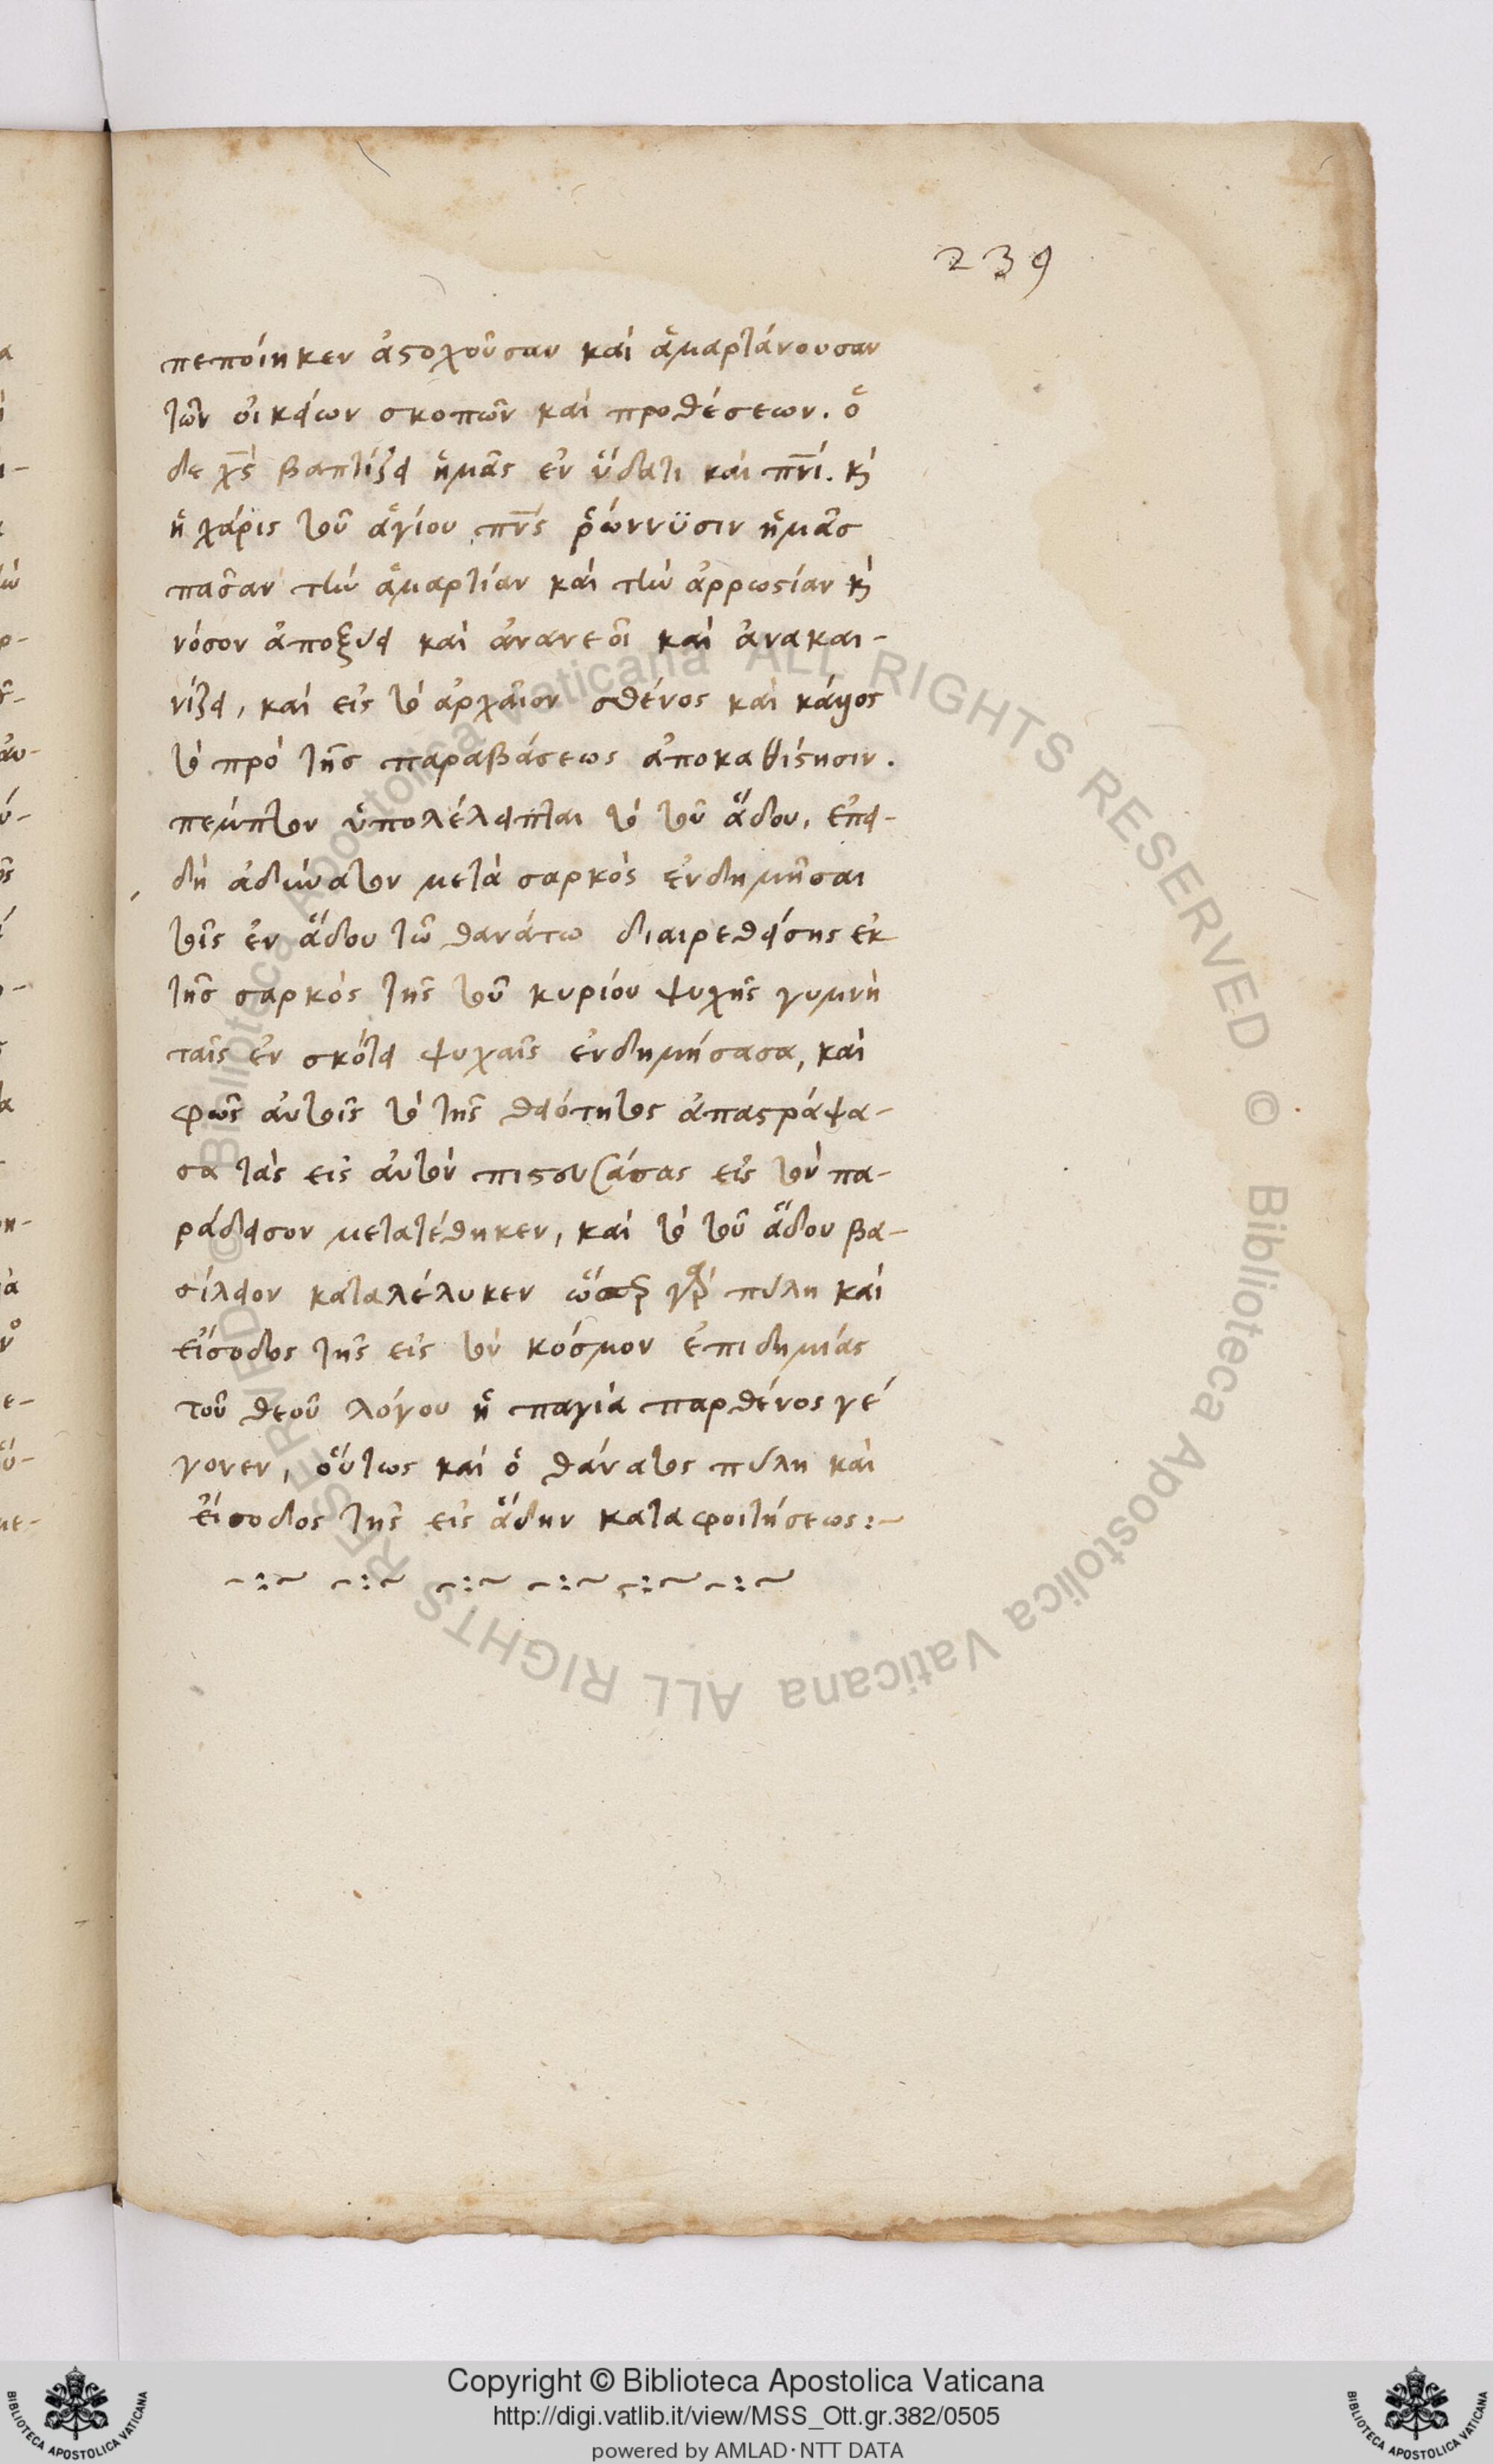 239
πεποίηκεν ἀστοχοῦσαν καὶ ἁμαρτάνουσαν
τῶν οἰκείων σκοπῶν καὶ προθέσεων. ὁ
δε χς βαπτίζει ἡμᾶς ἐν ὕδατι καὶ πνι. κὶ
ἡ χάρις τοῦ ἁγίου πνς ῥώννϋσιν ἡμᾶσ
πᾶσαν τὴν ἁμαρτίαν καὶ τὴν ἀρρωστίαν κὶ
νόσον ἀποξύει καὶ ἀνανεοῖ καὶ ἀνακαι-
νίζει, καὶ εἰς τὸ ἀρχαῖον σθένος καὶ κάλλος
τὸ πρὸ τῆσ παραβάσεως ἀποκαθίστησιν.
πέμπτον ὑπολέλειπται τὸ τοῦ ἅδου, ἐπει-
δὴ ἀδύνατον μετὰ σαρκὸς ἐνδημῆσαι
τοῖς ἐν ἅδου τῶ θανάτω διαιρεθείσης ἐκ
τῆσ σαρκὸς τῆς τοῦ κυρίου ψυχῆς γυμνὴ
ταῖς ἐν σκότει ψυχαῖς ἐνδημήσασα, καὶ
φῶς αὐτοῖς τὸ τῆς θεότητος ἀπαστράψα-
σα τὰς εἰς αὐτὸν πιστευσάσας εἰς τὸν πα-
ράδεισον μετατέθηκεν, καὶ τὸ τοῦ ἅδου βα-
σίλειον καταλέλυκεν ὥσπερ γὰρ πύλη καὶ
εἴσοδος τῆς εἰς τὸν κόσμον ἐπιδημίας
τοῦ θεοῦ λόγου ἡ παγία παρθένος γέ
γονεν, οὕτως καὶ ὁ θάνατος πύλη καὶ
εἴσοδος τῆς εἰς ἅδην καταφοιτήσεως:~
Copyright © Biblioteca Apostolica Vaticana
http://digi.vatlib.it/view/MSS_Ott.gr.382/0505
powered by AMLAD·NTT DATA